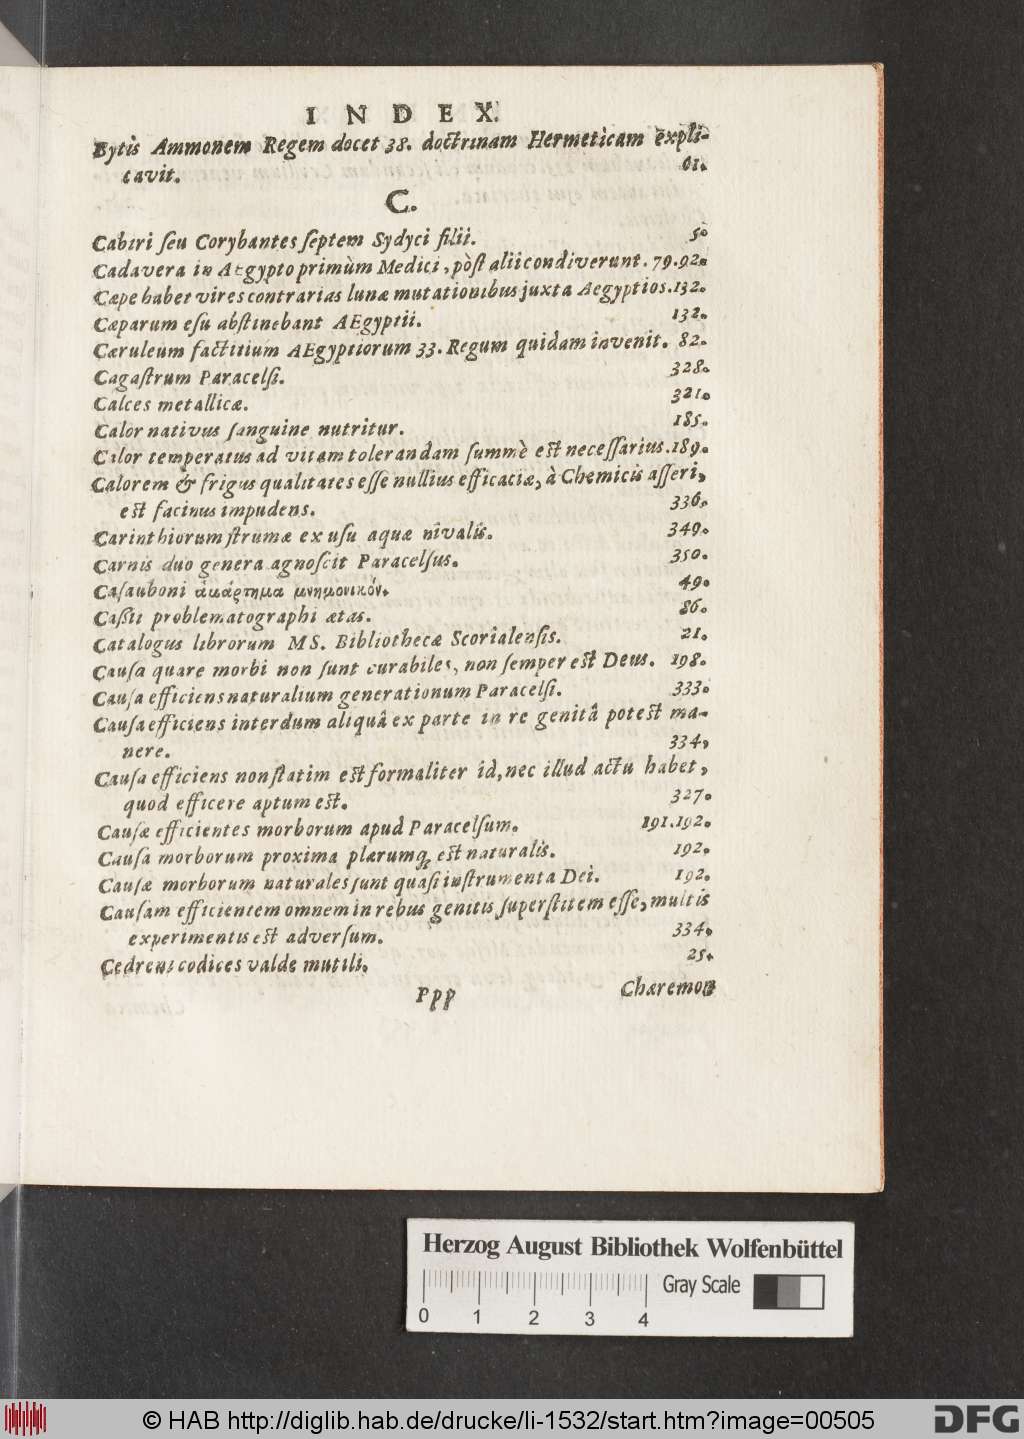 INDEX.
Bytis Ammonem Regem docet 38. doctrinam Hermeticam expli-
cavit. 61.
C.
Cabiri ſeu Corybantes ſeptem Sydyci filii. 50
Cadavera in Aegypto primùm Medici, pòſt alii condiverunt. 79.92.
Cæpe habet vires contrarias lunæ mutationibus juxta Aegyptios. 132.
Cæparum eſu abſtinebant AEgyptii. 132.
Cæruleum factitium AEgyptiorum 33. Regum quidam invenit. 82.
Cagaſtrum Paracelſi. 328.
Calces metallicæ. 321.
Calor nativus ſanguine nutritur. 185.
Calor temperatus ad vitam tolerandam ſummè est neceſſarius. 189.
Calorem & frigus qualitates eſſe nullius efficaciæ, à Chemicis aſſeri,
est facinus impudens. 336.
Carinthiorum ſtrumæ ex uſu aquæ nivalis. 349.
Carnis duo genera agnoſcit Paracelſus. 350.
Caſauboni ἁμάρτημα μνημονικόν. 49.
Caßii problematographi ætas. 86.
Catalogus librorum MS. Bibliothecæ Scorialenſis. 21.
Cauſa quare morbi non ſunt curabiles, non ſemper est Deus. 198.
Cauſa efficiens naturalium generationum Paracelſi. 333.
Cauſa efficiens interdum aliquâ ex parte in re genitâ potest ma-
nere. 334.
Cauſa efficiens non ſtatim est formaliter id, nec illud actu habet,
quod efficere aptum est. 327.
Cauſæ efficientes morborum apud Paracelſum. 191.192.
Cauſa morborum proxima plærumq; est naturalis. 192.
Cauſæ morborum naturales ſunt quaſi inſtrumenta Dei. 192.
Cauſam efficientem omnem in rebus genitis ſuperſtitem eſſe, multis
experimentis est adverſum. 334.
Cedreni codices valde mutili. 25.
Ppp Chæremon
Herzog August Bibliothek Wolfenbüttel
Gray Scale
0 1 2 3 4
© HAB http://diglib.hab.de/drucke/li-1532/start.htm?image=00505
DFG